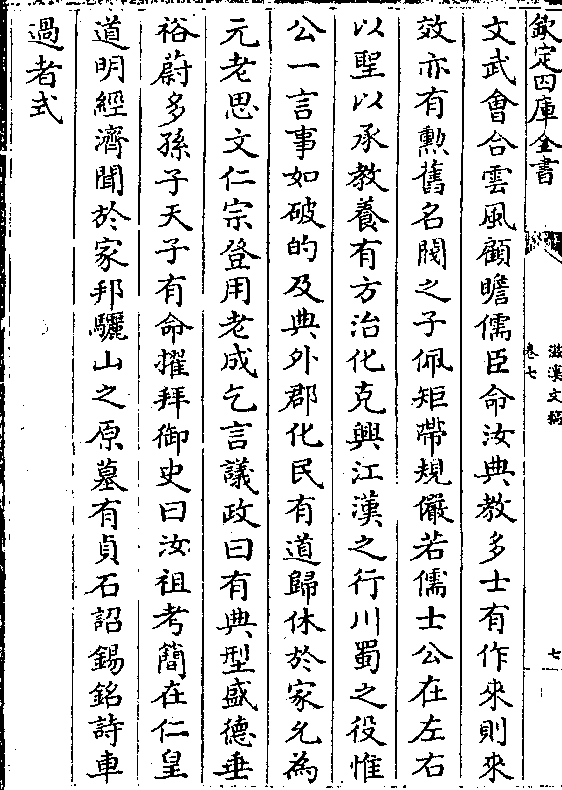 欽定四庫全書
滋溪文稿
卷七
七
文武會合雲風顧瞻儒臣命汝典教多士有作來則來
效亦有勲舊名閥之子佩矩帶規儼若儒士公在左右
以聖以承教養有方治化克興江漢之行川蜀之役惟
公一言事如破的及典外郡化民有道歸休於家允為
元老思文仁宗登用老成乞言議政曰有典型盛德垂
裕蔚多孫子天子有命擢拜御史曰汝祖考簡在仁皇
道明經濟聞於家邦驪山之原墓有貞石詔錫銘詩車
過者式